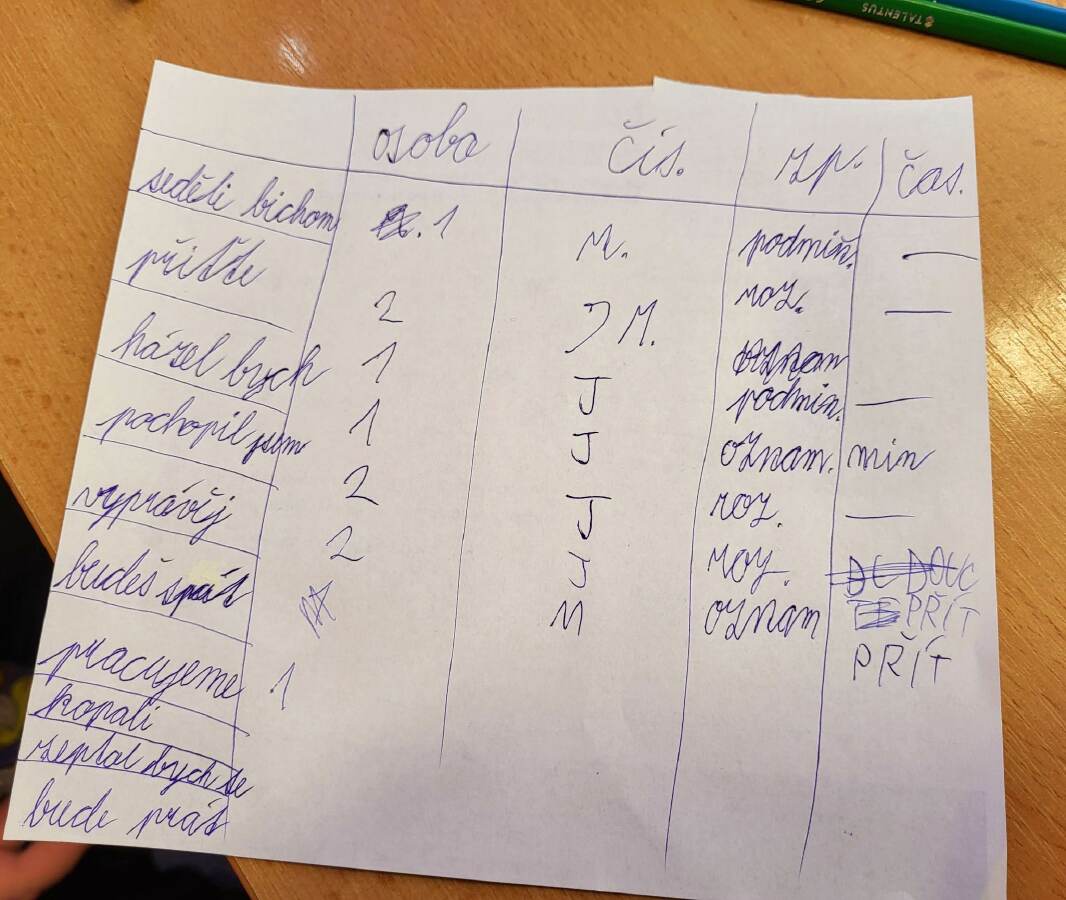 TALENTUS
osoba čís. zp. čas.
seděli bichom 1 M. podmiň. —
přiďte 2 M. roz. —
házel bych 1 J podmin. —
pochopil jsem 1 J oznam. min
vyprávěj 2 J roz. —
budeš spát 2 J roz. PŘÍT
pracujeme 1 M oznam PŘÍT
kopali
zeptal bych se
bude prát